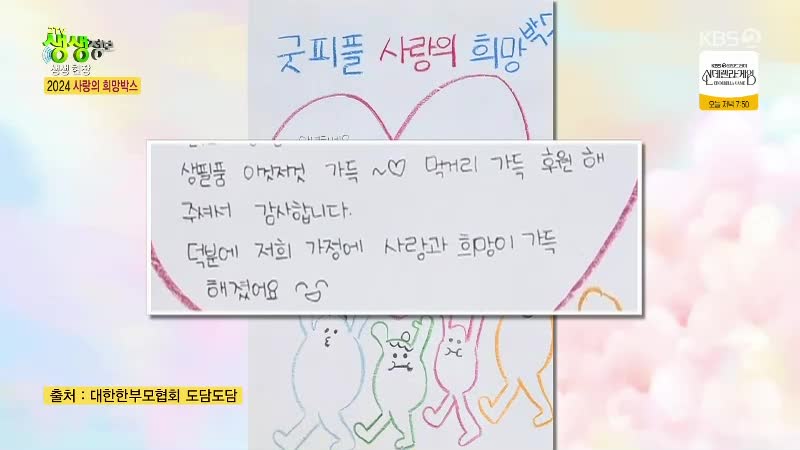 생생정보
생생현장
2024 사랑의 희망박스
KBS 2
신데렐라 게임
CINDERELLA GAME
오늘 저녁 7:50
굿피플 사랑의 희망박스
생필품 이것저것 가득 ~♡ 먹거리 가득 후원 해
주셔서 감사합니다.
덕분에 저희 가정에 사랑과 희망이 가득
해졌어요
출처 : 대한한부모협회 도담도담